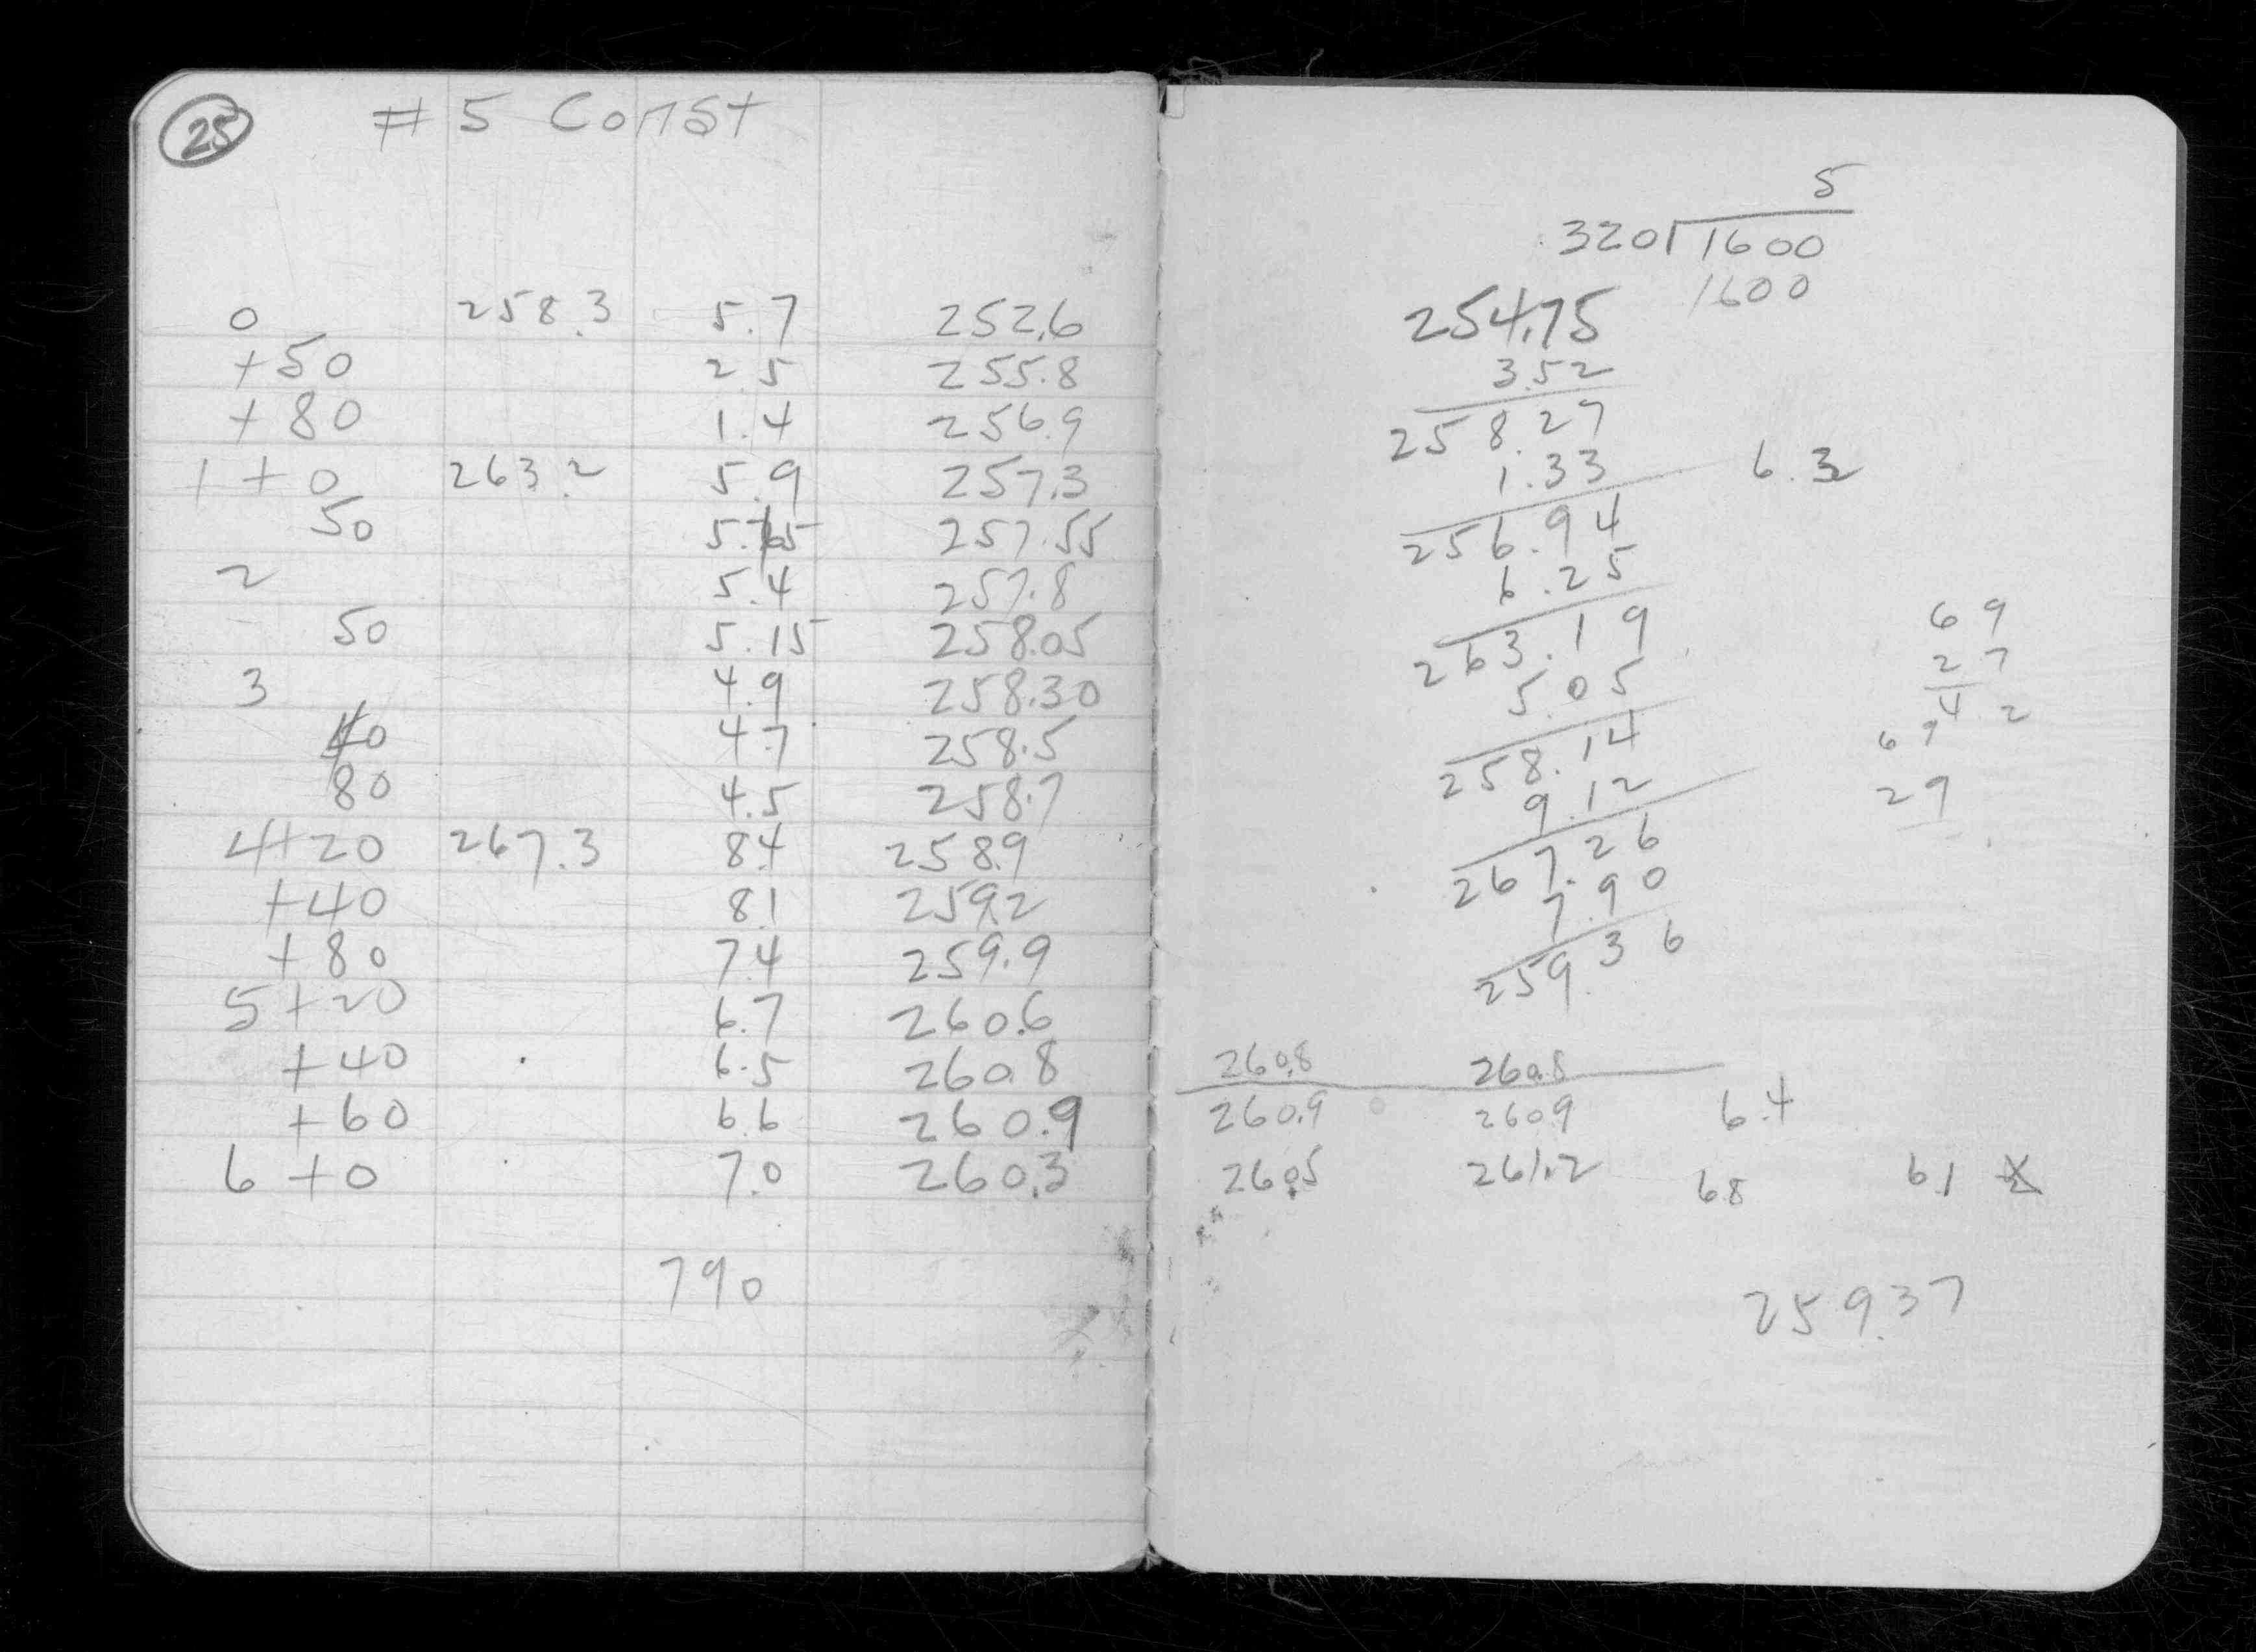 25 # 5 Const
0 258.3 5.7 252.6
+50 2.5 255.8
+80 1.4 256.9
1+0 263.2 5.9 257.3
50 5.65 257.55
2 5.4 257.8
50 5.15 258.05
3 4.9 258.30
40 4.7 258.5
80 4.5 258.7
4+20 267.3 8.4 258.9
+40 8.1 259.2
+80 7.4 259.9
5+20 6.7 260.6
+40 6.5 260.8
+60 6.6 260.9
6+0 7.0 260.3
790
5
320 1600
1600
254.75
3.52
258.27
1.33 6.3
256.94
6.25
263.19
5.05
258.14
9.12
267.26
7.90
259.36
69
27
42
69
29
260.8 260.8
260.9 260.9 6.4
260.5 261.2 68 61
259.37